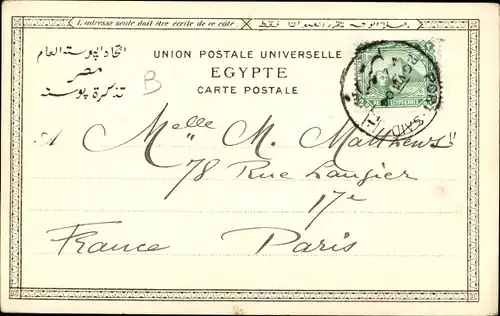 L'adresse seule doit être écrite de ce côté.
اتحاد البوستة العام
مصر
تذكرة بوستة
UNION POSTALE UNIVERSELLE
EGYPTE
CARTE POSTALE
B
PORT SAID
POSTES EGYPTIENNES
A Melle M. Matthews
78 Rue Laugier
17e
France Paris